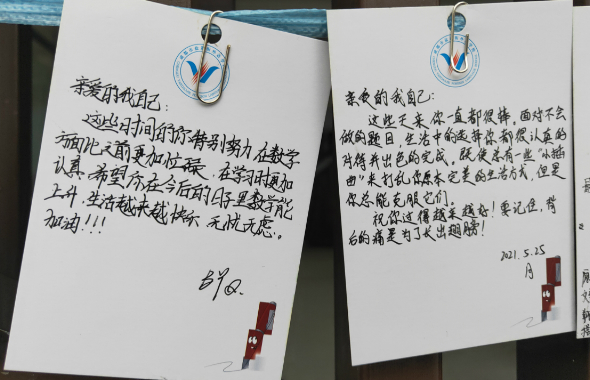 亲爱的我自己：
这些日时间的你特别努力，在数学
方面比之前更加忙碌，在学习时更加
认真。希望你在今后的日子里数学能
上升，生活越来越快乐 无忧无虑。
加油!!!
亲爱的我自己：
这些天来你一直都很棒。面对不会
做的题目，生活中的选择你都很认真的
对待并出色的完成。既使总有一些“小插
曲”来打乱你原本完美的生活方式，但是
你总能克服它们。
祝你过得越来越好！要记住，背
后的痛是为了长出翅膀！
2021.5.25
月